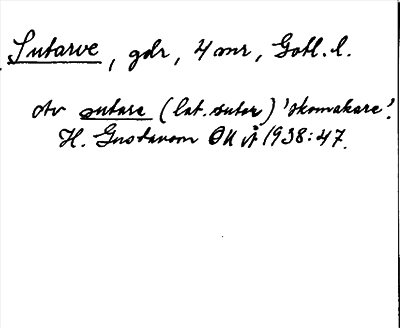 Sutarve, gdr, 4 mr, Gotl. l.
Av sutare (lat. sutor) 'skomakare'.
H. Gustavson OKÅ 1938:47.